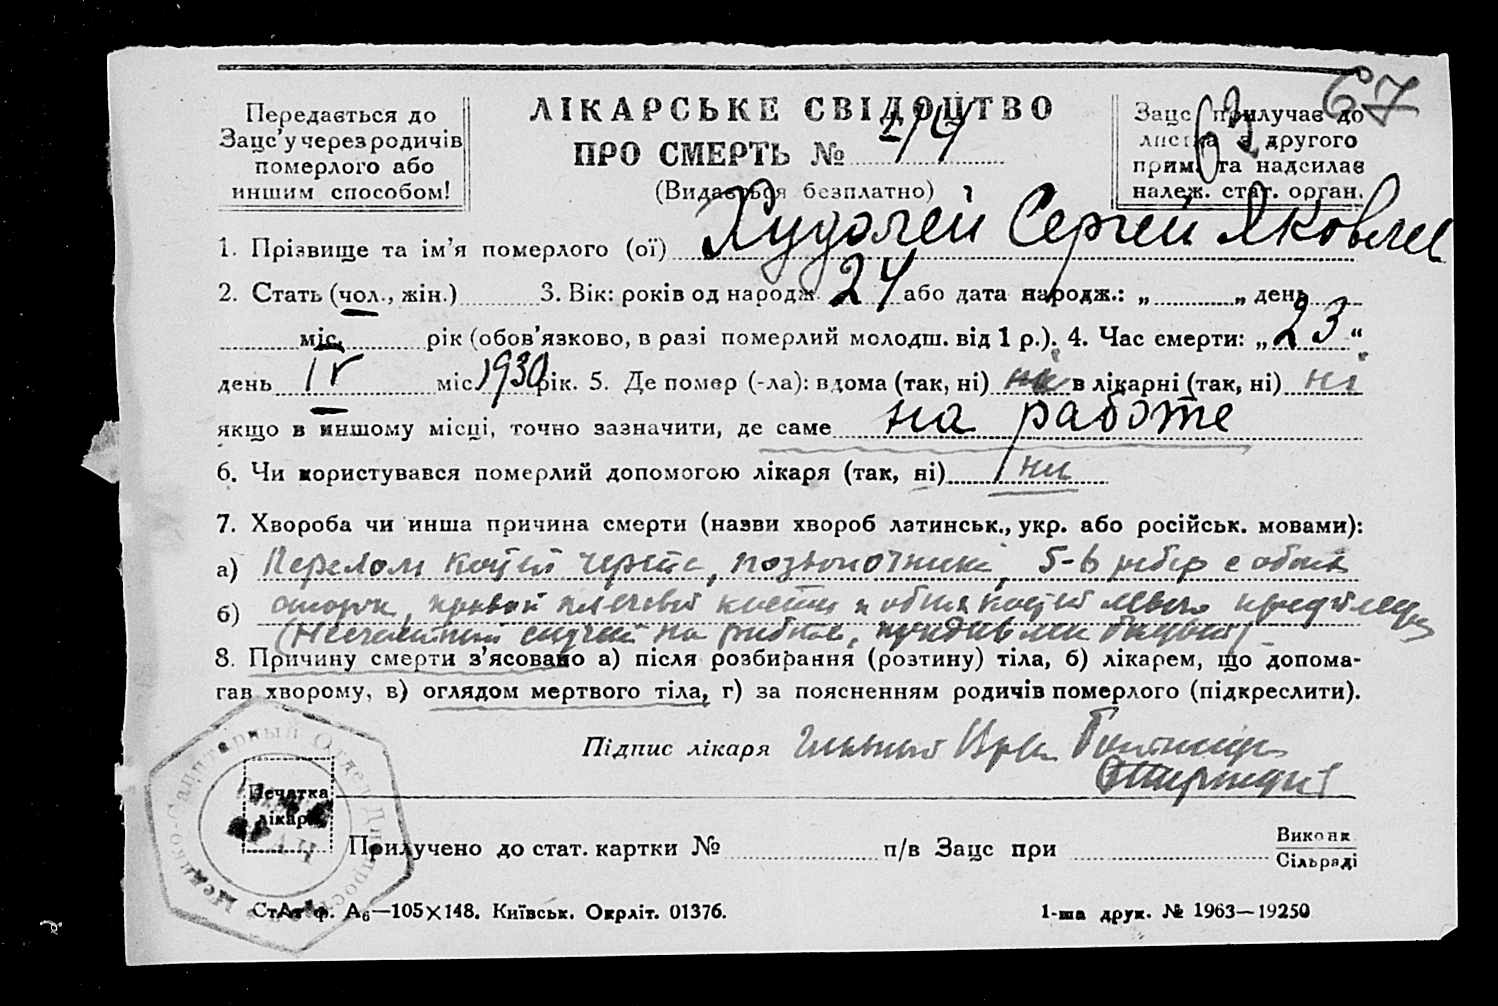 67
Передається до
Зацс'у через родичів
померлого або
иншим способом!
ЛІКАРСЬКЕ СВІДОЦТВО
ПРО СМЕРТЬ №
(Видається безплатно)
Зацс прилучає до
листка з другого
прим. та надсилає
належ. стат. орган.
62
1. Прізвище та ім'я померлого (ої) Худолей Сергей Яковлев
2. Стать (чол., жін.) 3. Вік: років од народж. 24 або дата народж.: „ „ день
міс. рік (обов'язково, в разі померлий молодш. від 1 р.). 4. Час смерти: „ 23 “
день IV міс. 1930 рік. 5. Де помер (-ла): вдома (так, ні) ні в лікарні (так, ні) ні
якщо в иншому місці, точно зазначити, де саме на работе
6. Чи користувався померлий допомогою лікаря (так, ні) ни
7. Хвороба чи инша причина смерти (назви хвороб латинськ., укр. або російськ. мовами):
а) Перелом костей черепа, позвоночника, 5-6 ребер с обоих
б) сторон, правой плечевой кости и обеих костей левого предплечья
(Несчастный случай на работе, придавлен
8. Причину смерти з'ясовано а) після розбирання (розтину) тіла, б) лікарем, що допома-
гав хворому, в) оглядом мертвого тіла, г) за поясненням родичів померлого (підкреслити).
Підпис лікаря
Печатка
лікаря
Медико-Санитарный Отдел
Прилучено до стат. картки № п/в Зацс при Виконк.
Сільраді
Стат. ф. А6—105×148. Київськ. Окрліт. 01376.
1-ша друк. № 1963—19250